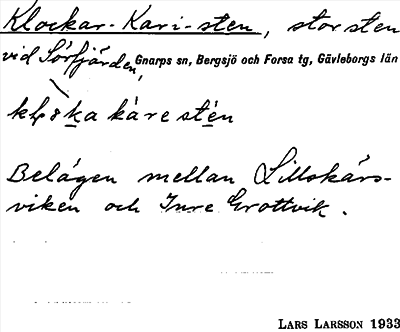 Klockar-Kari-sten, stor sten
vid Sörfjärden, Gnarps sn, Bergsjö och Forsa tg, Gävleborgs län
ka kàre stén
Belägen mellan Lillskärs-
viken och Inre Grottvik.
LARS LARSSON 1933